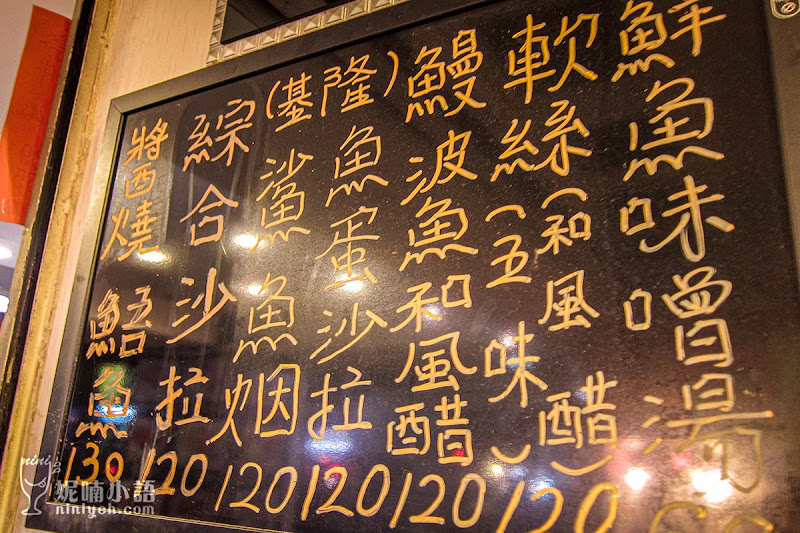 鮮魚味噌湯
軟絲(五味)(和風醋) 120
鰻波魚和風醋 120
(基隆)
魚蛋沙拉 120
鯊魚烟 120
綜合沙拉 120
醬燒鯃魚 130
nini
妮喃小語
niniyeh.com